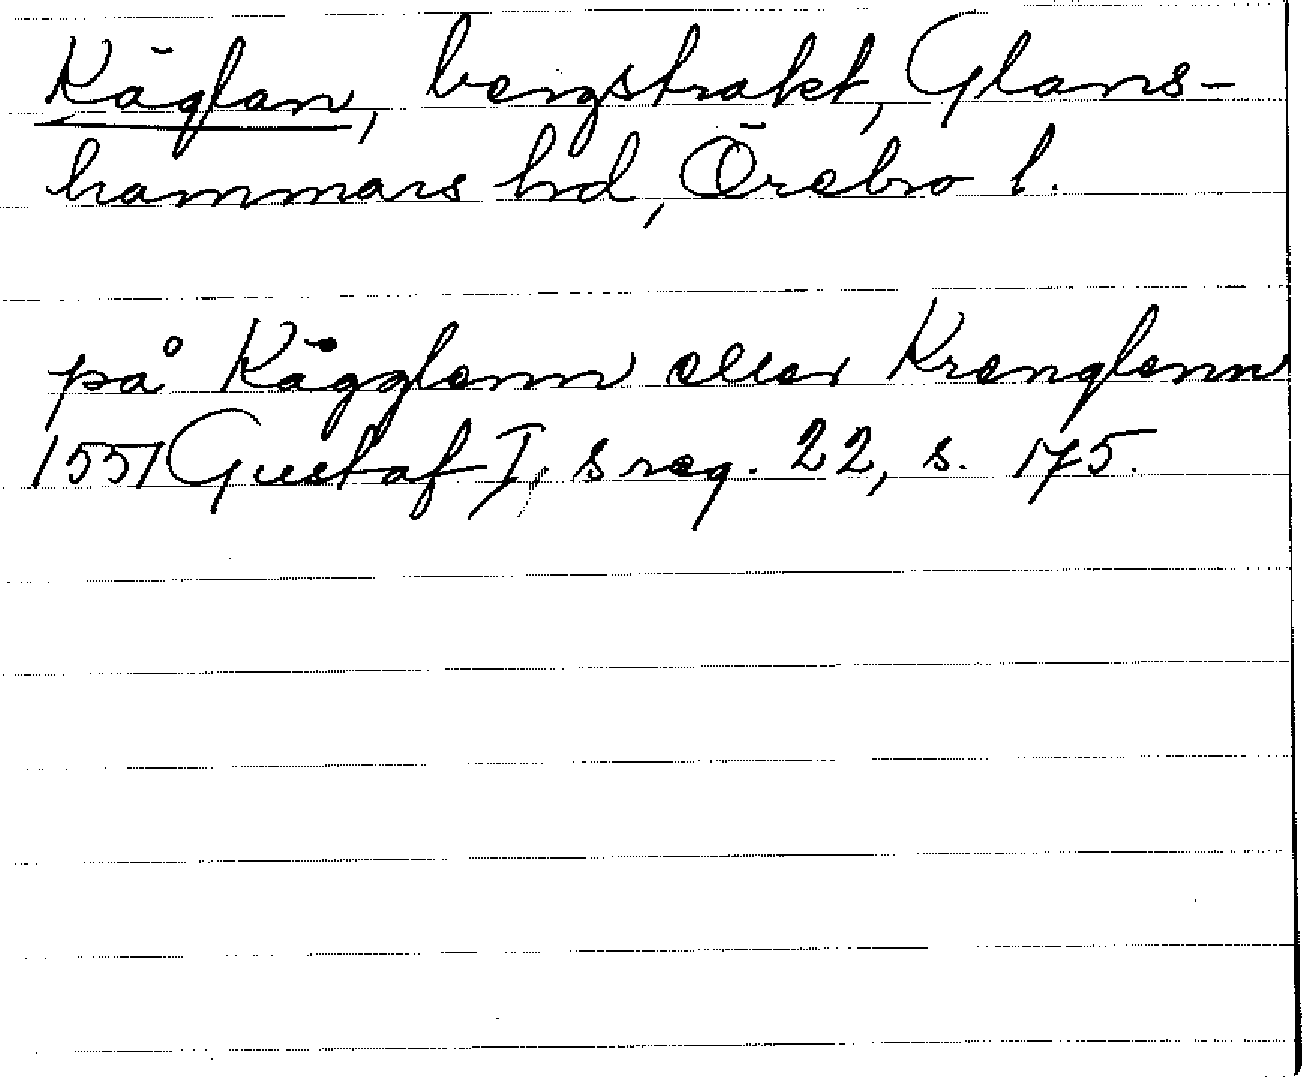 Käglan, bergstrakt, Glans-
hammars hd, Örebro l.
på Kägglenn eller Krenglenn
1551 Gustaf I, s reg. 22, s. 175.